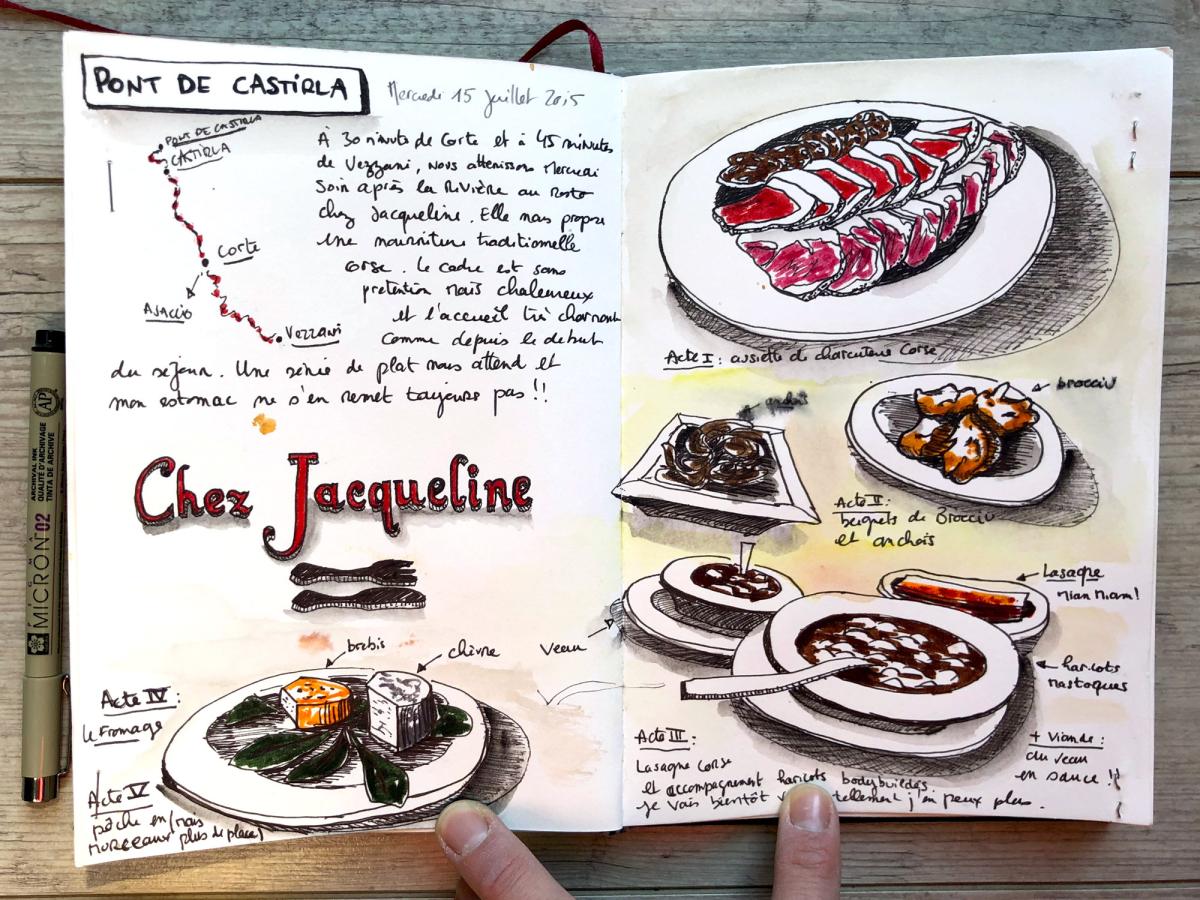 PONT DE CASTIRLA
Mercredi 15 Juillet 2015
PONT DE CASTIRLA
CASTIRLA
Corte
AJACCIO
Vezzani
À 30 minute de Corte et à 45 minutes
de Vezzani, nous attenissons Mercredi
Soir après la Rivière au Resto
chez Jacqueline. Elle nous propose
une nourriture traditionnelle
corse. Le cadre est sans
pretention mais chaleureux
et l'acceuil très charmant
comme depuis le debut
du sejour. Une série de plat nous attend et
mon estomac ne s'en remet toujours pas !!
Chez Jacqueline
brebis
chèvre
Acte IV :
le Fromage
Acte V
pêche en
morceaux plus de place)
Acte I : assiette de charcuterie Corse
brocciu
Acte II :
beignets de Brocciu
et anchois
Lasagne
Miam Miam!
Veau
haricots
mastoques
Acte III :
Lasagne Corse
et accompagnement haricots bodybuildés.
Je vais bientôt tellement j'en peux plus.
+ Viande :
du veau
en sauce !!
SAKURA
MICRON 02
ARCHIVAL INK
QUALITÉ D'ARCHIVAGE
TINTA DE ARCHIVE
AP